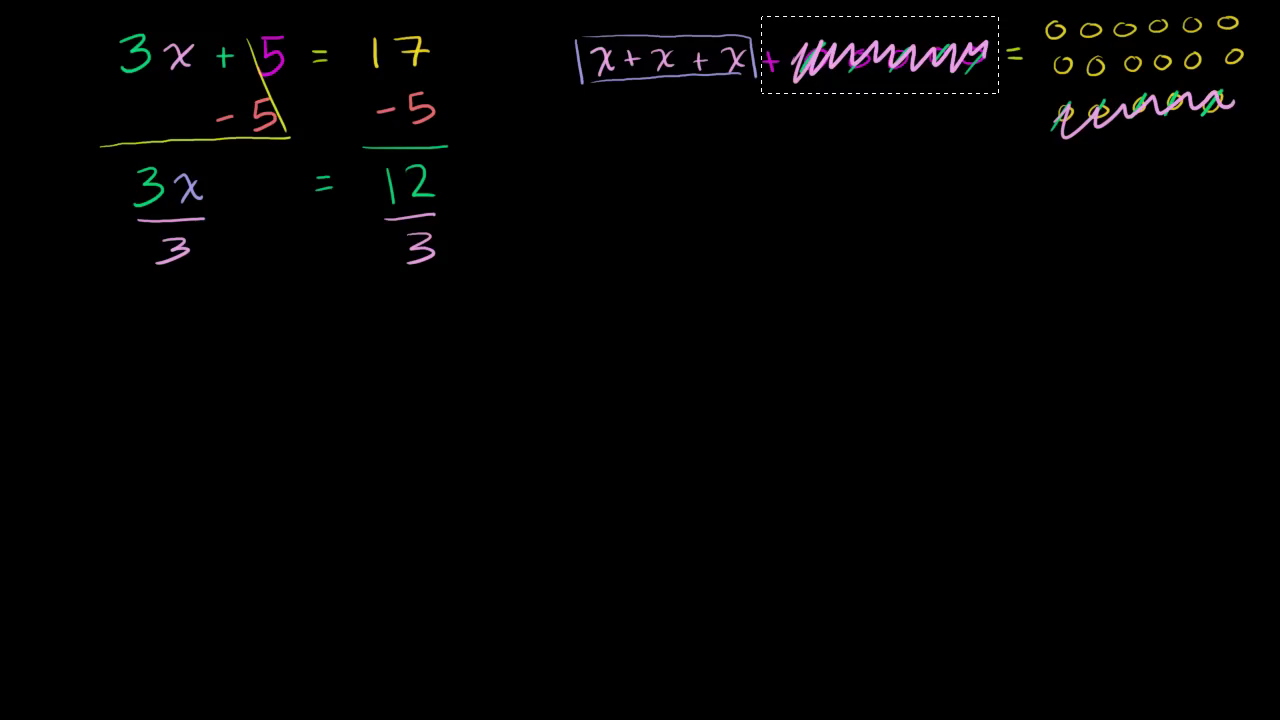 3x + 5 = 17
- 5 - 5
3x = 12
3 3
x + x + x + =